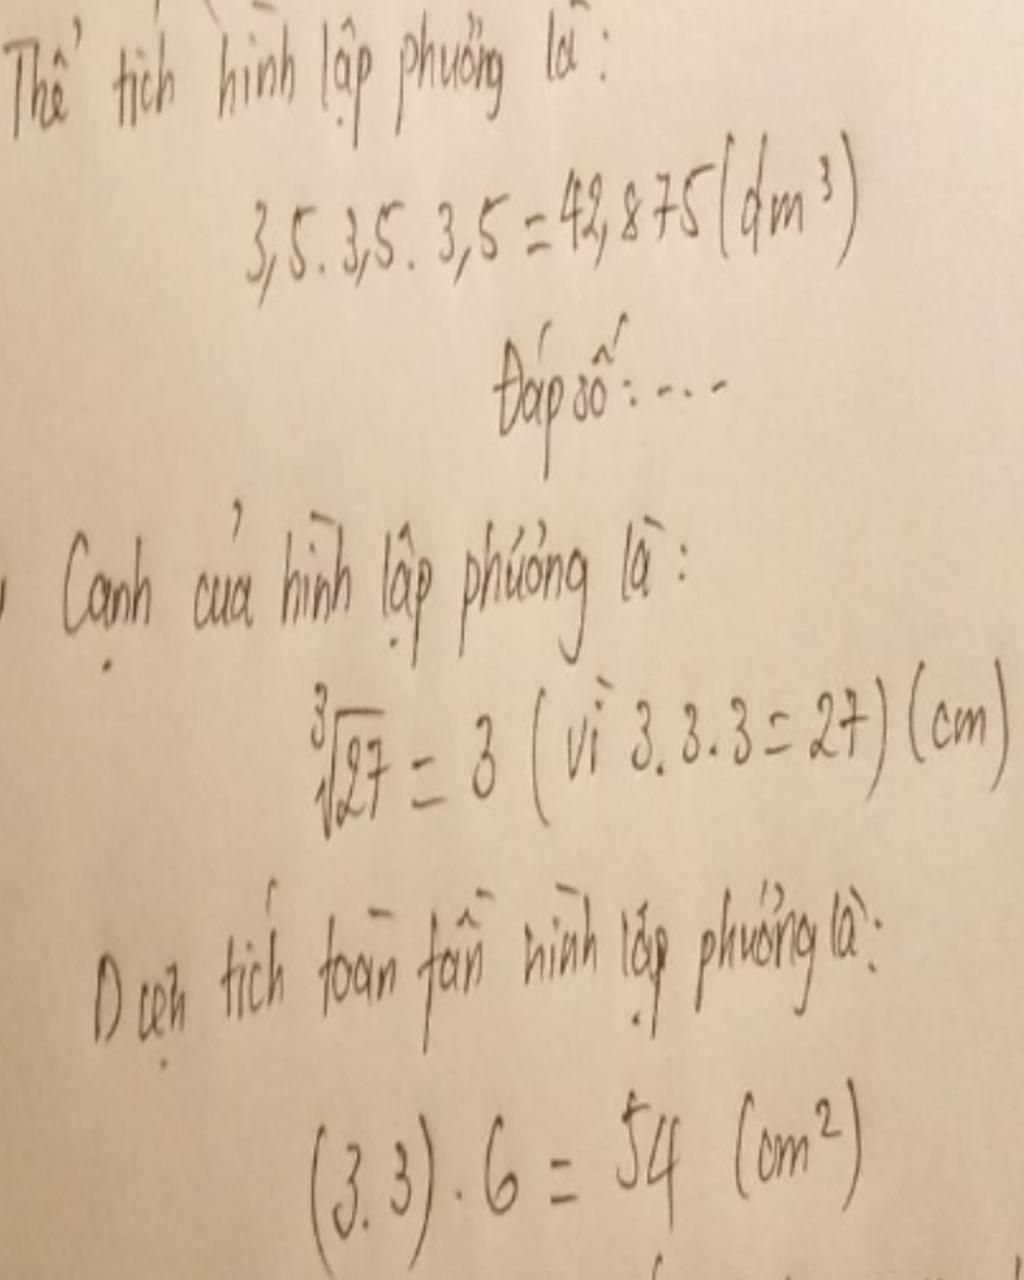 Thể tích hình lập phương là:
3,5.3,5.3,5=42,875(dm³)
Đáp số:....
Cạnh của hình lập phương là:
∛27 = 3 (vì 3.3.3=27)(cm)
Diện tích toàn fần hình lập phương là:
(3.3).6 = 54 (cm²)